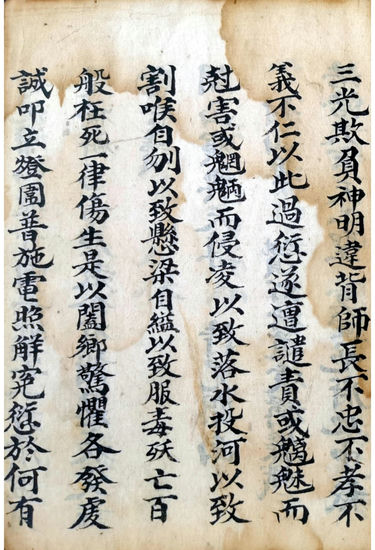 三光欺負神明違背師長不忠不孝不
義不仁以此過愆遂遭譴責或魑魅而
尅害或魍魎而侵凌以致落水投河以致
割喉自刎以致懸梁自縊以致服毒殀亡百
般枉死一律傷生是以闔鄉驚懼各發虔
誠叩立燈園普施電照解寃愆於何有